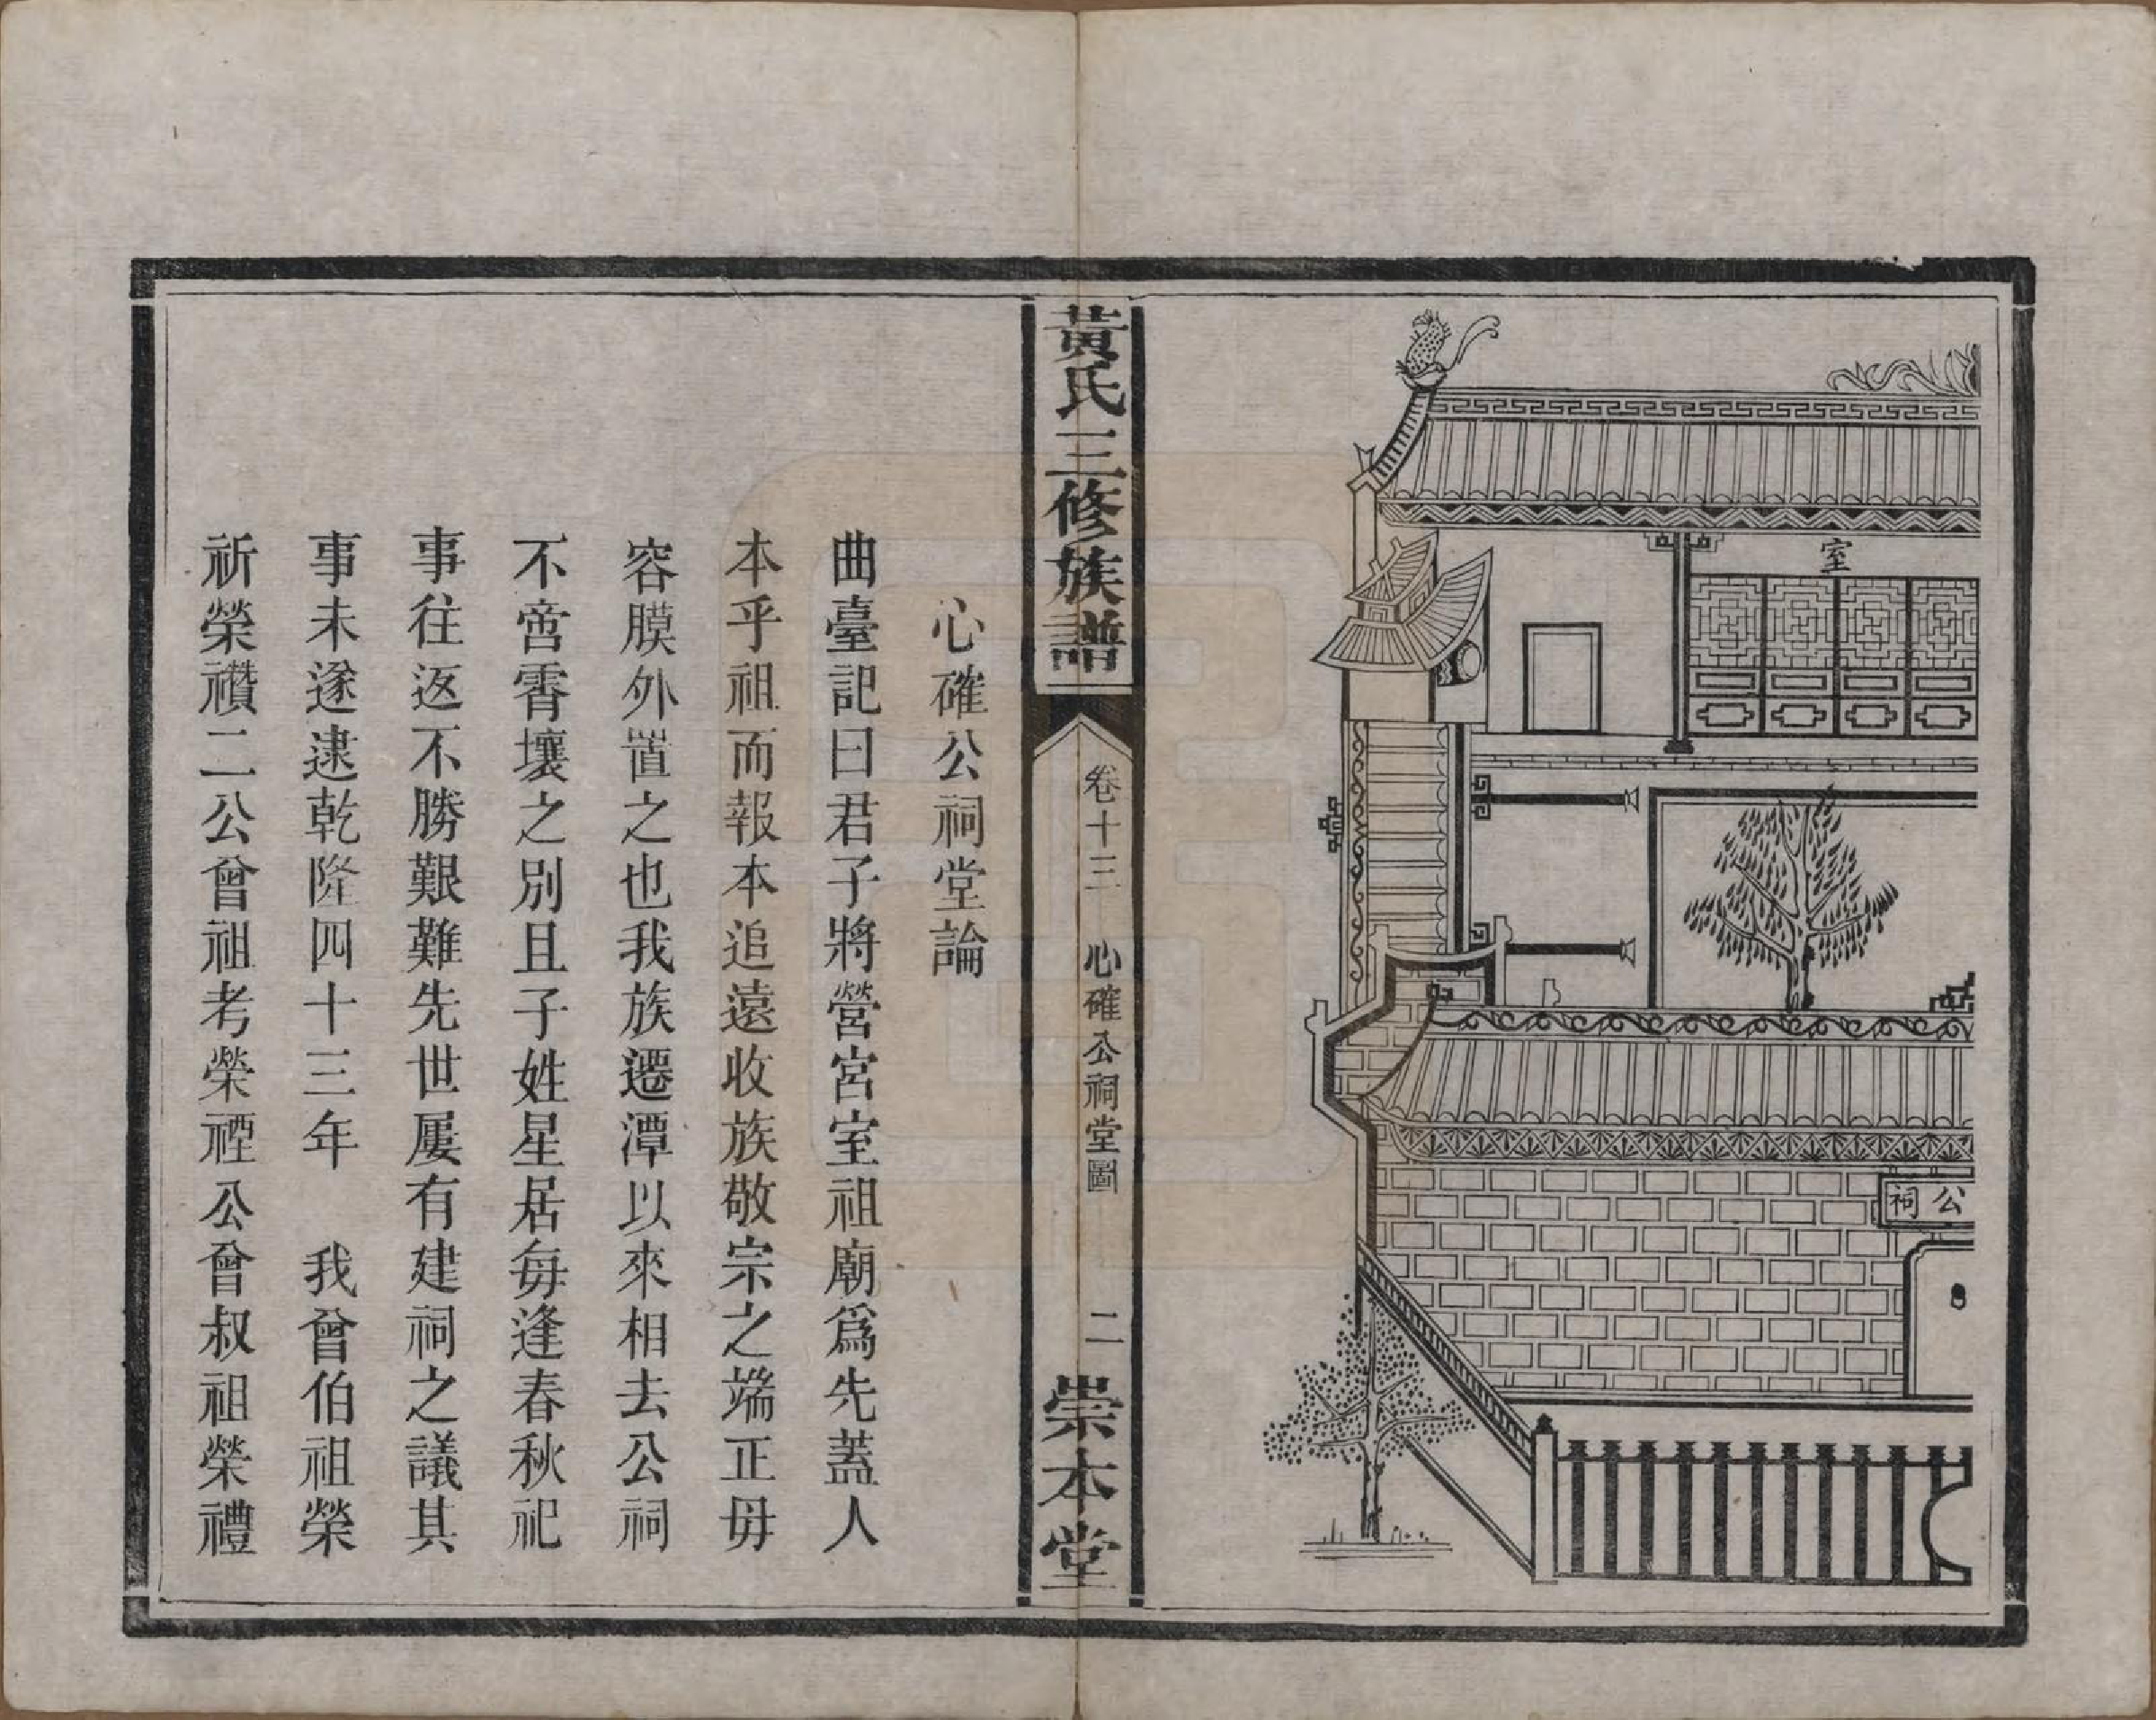 室
公
祠
黃氏三修族譜
卷十三
心確公祠堂圖
二
崇本堂
心確公祠堂論
曲臺記曰君子將營宮室祖廟爲先蓋人
本乎祖而報本追遠收族敬宗之端正毋
容膜外置之也我族遷潭以來相去公祠
不啻霄壤之別且子姓星居每逢春秋祀
事往返不勝艱難先世屢有建祠之議其
事未遂逮乾隆四十三年 我曾伯祖榮
祈榮禶二公曾祖考榮禋公曾叔祖榮禮